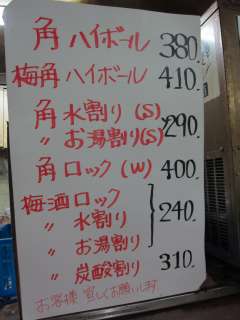 角ハイボール 380.
梅角ハイボール 410.
角水割り(S)
〃お湯割り(S) 290.
角ロック(W) 400.
梅酒ロック
〃 水割り 240.
〃 お湯割り
〃 炭酸割り 310.
お客様 宜しくお願いします